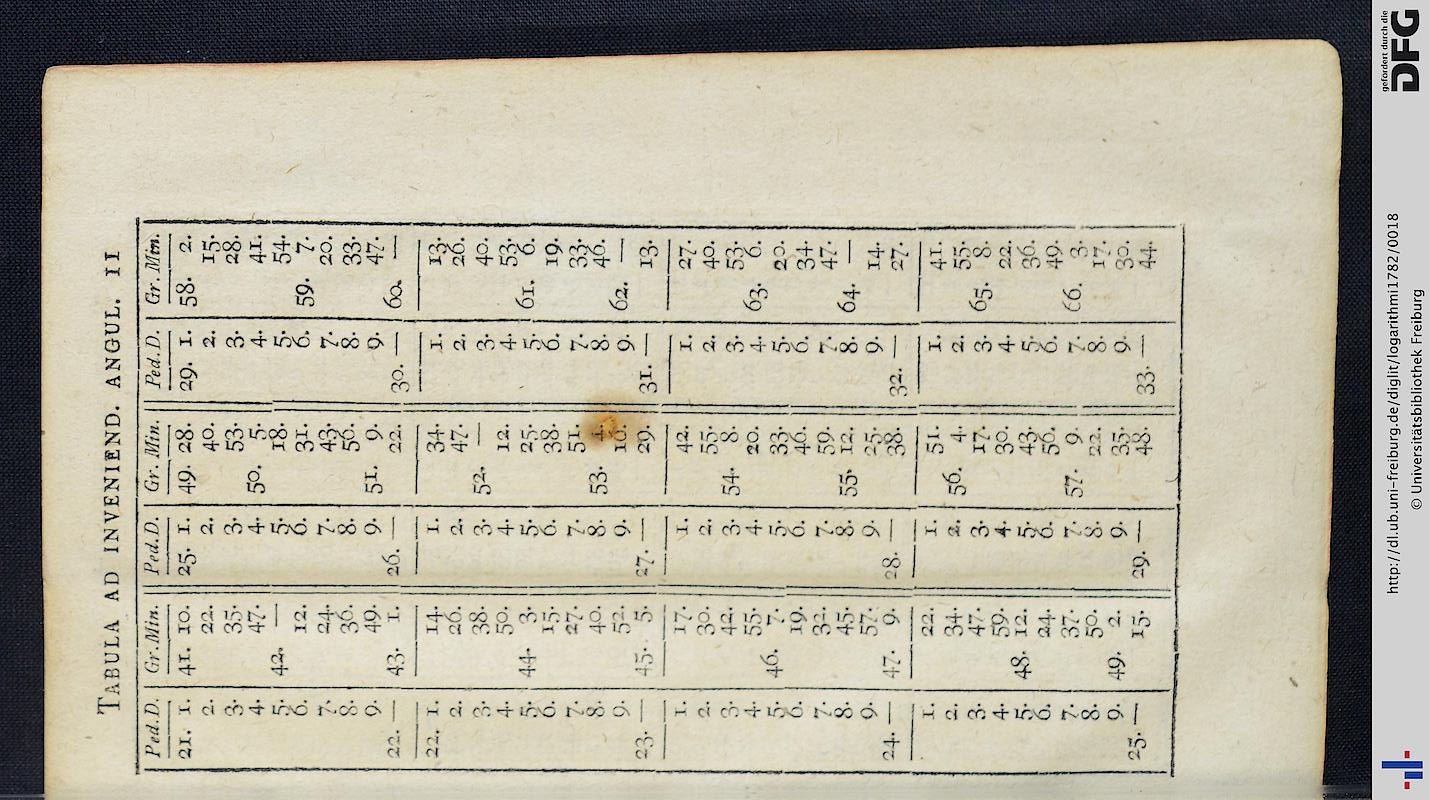 TABULA AD INVENIEND. ANGUL. II
Ped.D. Gr.Min. Ped.D. Gr. Min. Ped.D. Gr. Min.
21. 1. 41. 10. 25. 1. 49. 28. 29. 1. 58. 2.
2. 22. 2. 40. 2. 15.
3. 35. 3. 53. 3. 28.
4. 47. 4. 50. 5. 4. 41.
5. 42. — 5. 18. 5. 54.
6. 12. 6. 31. 6. 59. 7.
7. 24. 7. 43. 7. 20.
8. 36. 8. 56. 8. 33.
9. 49. 9. 51. 9. 9. 47.
22. — 43. 1. 26. — 22. 30. — 60. —
22. 1. 14. 1. 34. 1. 13.
2. 26. 2. 47. 2. 26.
3. 38. 3. 52. — 3. 40.
4. 50. 4. 12. 4. 53.
5. 44. 3. 5. 25. 5. 61. 6.
6. 15. 6. 38. 6. 19.
7. 27. 7. 51. 7. 33.
8. 40. 8. 53. 4. 8. 46.
9. 52. 9. 16. 9. 62. —
23. — 45. 5. 27. — 29. 31. — 13.
1. 17. 1. 42. 1. 27.
2. 30. 2. 55. 2. 40.
3. 42. 3. 54. 8. 3. 53.
4. 55. 4. 20. 4. 63. 6.
5. 46. 7. 5. 33. 5. 20.
6. 19. 6. 46. 6. 34.
7. 32. 7. 59. 7. 47.
8. 45. 8. 55. 12. 8. 64. —
9. 57. 9. 25. 9. 14.
24. — 47. 9. 28. — 38. 32. — 27.
1. 22. 1. 51. 1. 41.
2. 34. 2. 56. 4. 2. 55.
3. 47. 3. 17. 3. 65. 8.
4. 59. 4. 30. 4. 22.
5. 48. 12. 5. 43. 5. 36.
6. 24. 6. 56. 6. 49.
7. 37. 7. 57. 9. 7. 66. 3.
8. 50. 8. 22. 8. 17.
9. 49. 2. 9. 35. 9. 30.
25. — 15. 29. — 48. 33. — 44.
http://dl.ub.uni-freiburg.de/diglit/logarithmi1782/0018
© Universitätsbibliothek Freiburg
gefördert durch die
DFG